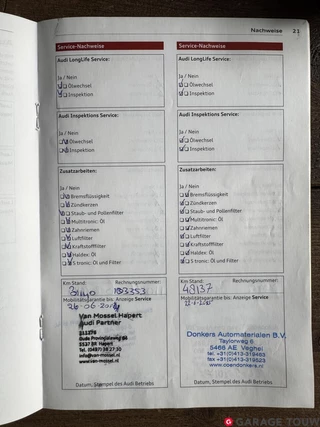 Nachweise 21
Service-Nachweise
Audi LongLife Service:
Ja / Nein
Ölwechsel
Inspektion
Audi Inspektions Service:
Ja / Nein
Ölwechsel
Inspektion
Zusatzarbeiten:
Ja / Nein
Bremsflüssigkeit
Zündkerzen
Staub- und Pollenfilter
Multitronic: Öl
Zahnriemen
Luftfilter
Kraftstofffilter
Haldex: Öl
S tronic: Öl und Filter
Km Stand: Rechnungsnummer:
103353
Mobilitätsgarantie bis: Anzeige Service
26-06-2014
Van Mossel Hapert
Audi Partner
Oude Provincialeweg 81
5527 BR Hapert
Tel. (0497) 36 27 30
info@van-mossel.nl
www.van-mossel.nl
Datum, Stempel des Audi Betriebs
Service-Nachweise
Audi LongLife Service:
Ja / Nein
Ölwechsel
Inspektion
Audi Inspektions Service:
Ja / Nein
Ölwechsel
Inspektion
Zusatzarbeiten:
Ja / Nein
Bremsflüssigkeit
Zündkerzen
Staub- und Pollenfilter
Multitronic: Öl
Zahnriemen
Luftfilter
Kraftstofffilter
Haldex: Öl
S tronic: Öl und Filter
Km Stand: Rechnungsnummer:
48137
Mobilitätsgarantie bis: Anzeige Service
Donkers Automaterialen B.V.
Taylorweg 6
5466 AE Veghel
tel. +31(0)413-319463
fax +31(0)413-319753
www.coendonkers.nl
Datum, Stempel des Audi Betriebs
G GARAGE TOUW